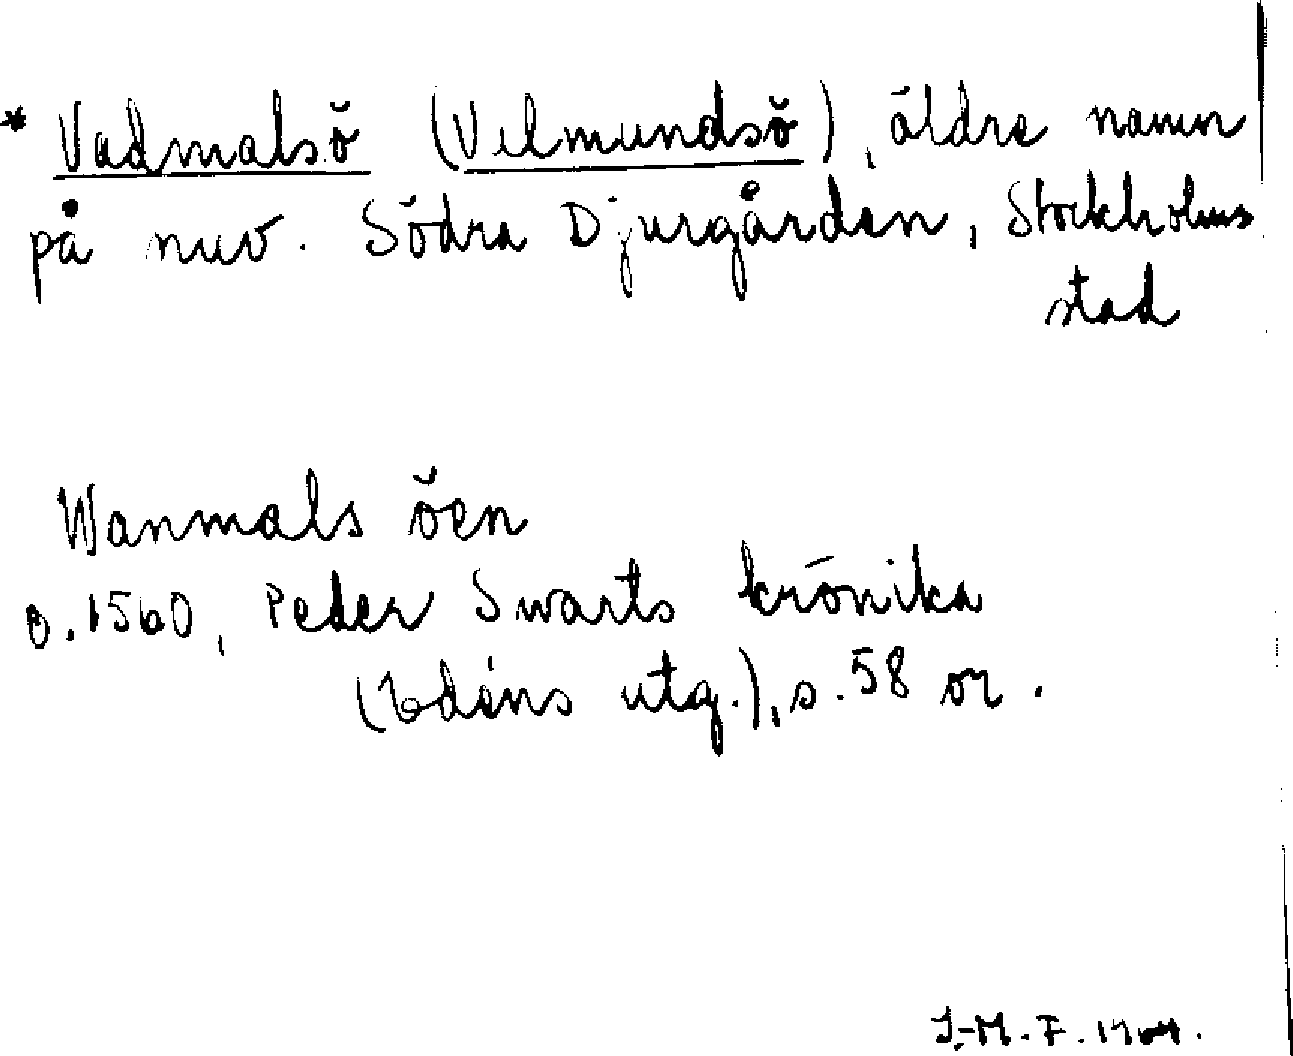 * Vadmalsö (Vilmundsö), äldre namn
på nuv. Södra Djurgården, Stockholms
stad
Wanmals öen
o. 1560, Peder Swarts krönika
(Edéns utg.), s. 58 or.
I.-M. F. 1964.